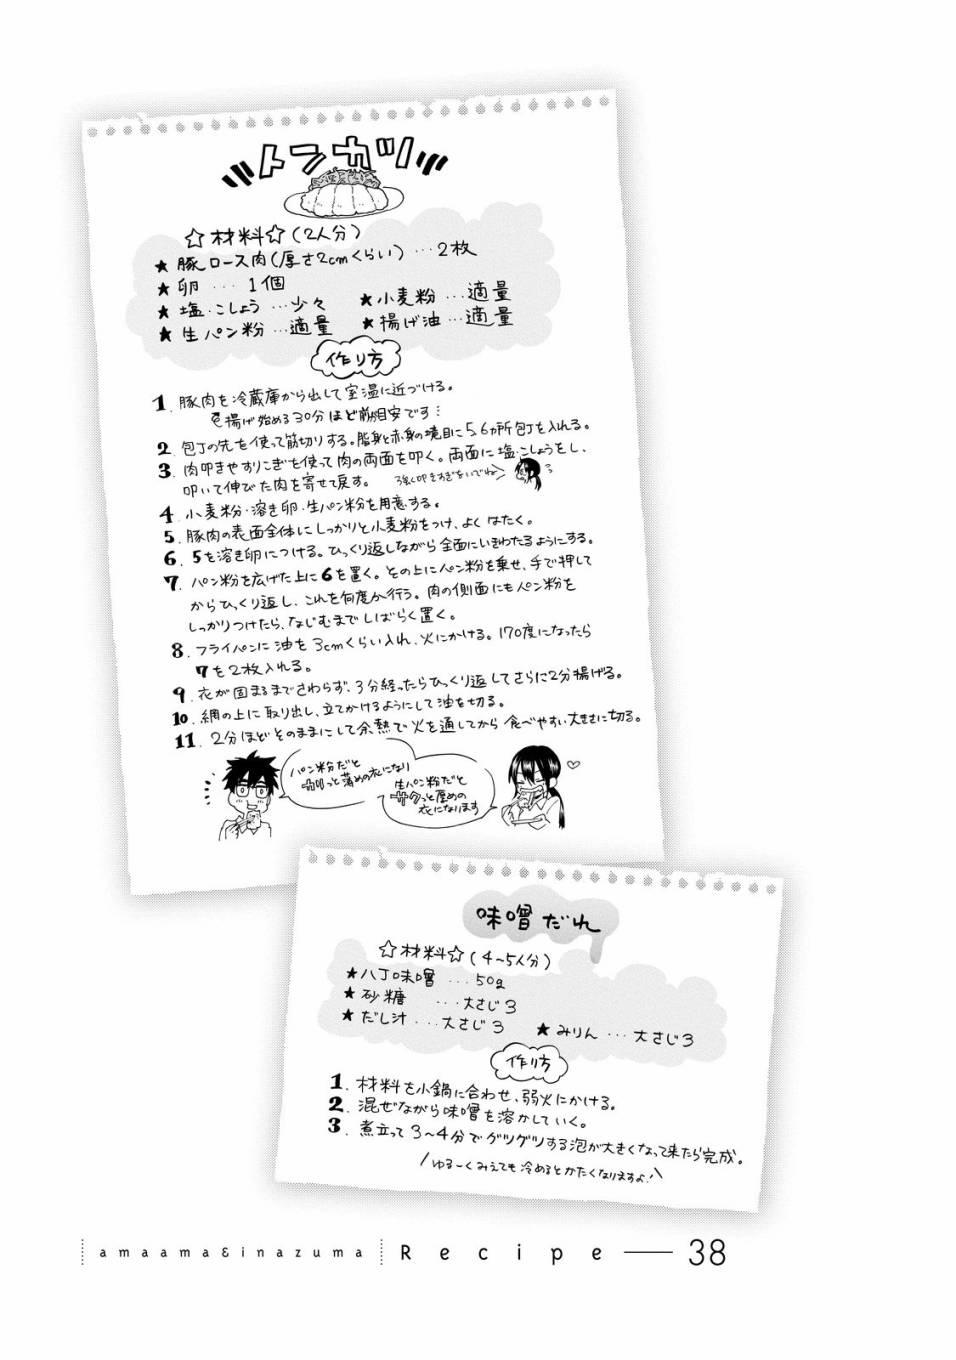 トンカツ
☆材料☆(2人分)
★豚ロース肉(厚さ2cmくらい)…2枚
★卵…1個
★塩・こしょう…少々 ★小麦粉…適量
★生パン粉…適量 ★揚げ油…適量
作り方
1. 豚肉を冷蔵庫から出して室温に近づける。
揚げ始める30分ほど前が目安です…
2. 包丁の先を使って筋切りする。脂身と赤身の境目に5,6カ所包丁を入れる。
3. 肉叩きやすりこぎを使って肉の両面を叩く。両面に塩・こしょうをし、
叩いて伸びた肉を寄せて戻す。 強く叩きすぎないでね
4. 小麦粉・溶き卵・生パン粉を用意する。
5. 豚肉の表面全体にしっかりと小麦粉をつけ、よくはたく。
6. 5を溶き卵につける。ひっくり返しながら全面にいきわたるようにする。
7. パン粉を広げた上に6を置く。その上にパン粉を乗せ、手で押して
からひっくり返し、これを何度か行う。肉の側面にもパン粉を
しっかりつけたら、なじむまでしばらく置く。
8. フライパンに油を3cmくらい入れ、火にかける。170度になったら
7を2枚入れる。
9. 衣が固まるまでさわらず、3分経ったらひっくり返してさらに2分揚げる。
10. 網の上に取り出し、立てかけるようにして油を切る。
11. 2分ほどそのままにして余熱で火を通してから食べやすい大きさに切る。
パン粉だと
カリっと薄めの衣になり
生パン粉だと
サクっと厚めの
衣になります
味噌だれ
☆材料☆(4~5人分)
★八丁味噌…50g
★砂糖…大さじ3
★だし汁…大さじ3 ★みりん…大さじ3
作り方
1. 材料を小鍋に合わせ、弱火にかける。
2. 混ぜながら味噌を溶かしていく。
3. 煮立って3~4分でグツグツする泡が大きくなって来たら完成。
ゆるーくみえても冷めるとかたくなりますよ!
amaama&inazuma Recipe 38